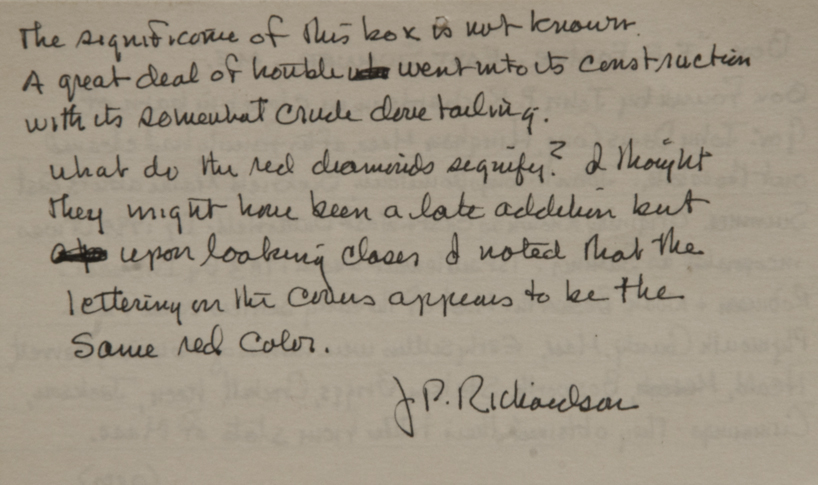 The significance of this box is not known.
A great deal of trouble went into its construction
with its somewhat crude dovetailing.
What do the red diamonds signify? I thought
they might have been a late addition but
upon looking closer I noted that the
lettering on the covers appears to be the
same red color.
J.P. Richardson